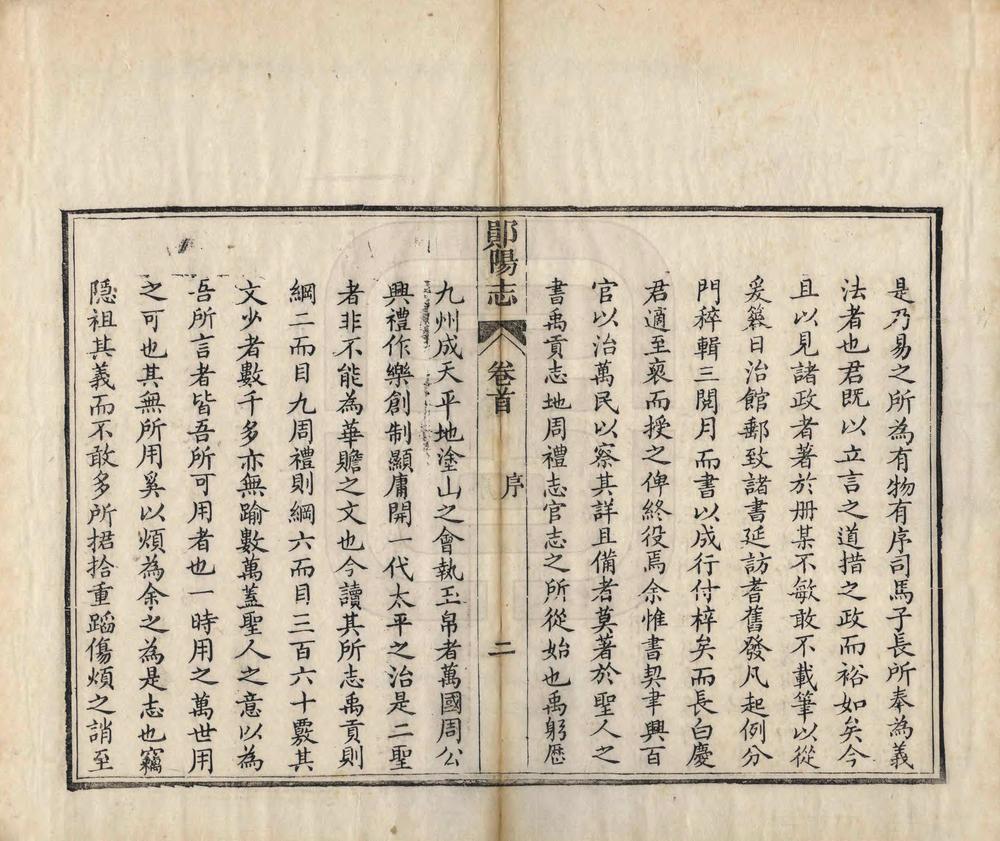 是乃易之所為有物有序司馬子長所奉為義
法者也君既以立言之道措之政而裕如矣今
且以見諸政者著於册某不敏敢不載筆以從
爰簒日治館郵致諸書延訪耆舊發凡起例分
門稡輯三閱月而書以成行付梓矣而長白慶
君適至裒而授之俾終役焉余惟書契聿興百
官以治萬民以察其詳且備者莫著於聖人之
書禹貢志地周禮志官志之所從始也禹躬歴
鄖陽志
卷首
序
二
九州成天平地塗山之會執玉帛者萬國周公
興禮作樂創制顯庸開一代太平之治是二聖
者非不能為華贍之文也今讀其所志禹貢則
綱二而目九周禮則綱六而目三百六十覈其
文少者數千多亦無踰數萬蓋聖人之意以為
吾所言者皆吾所可用者也一時用之萬世用
之可也其無所用奚以煩為余之為是志也竊
隱祖其義而不敢多所捃拾重蹈傷煩之誚至